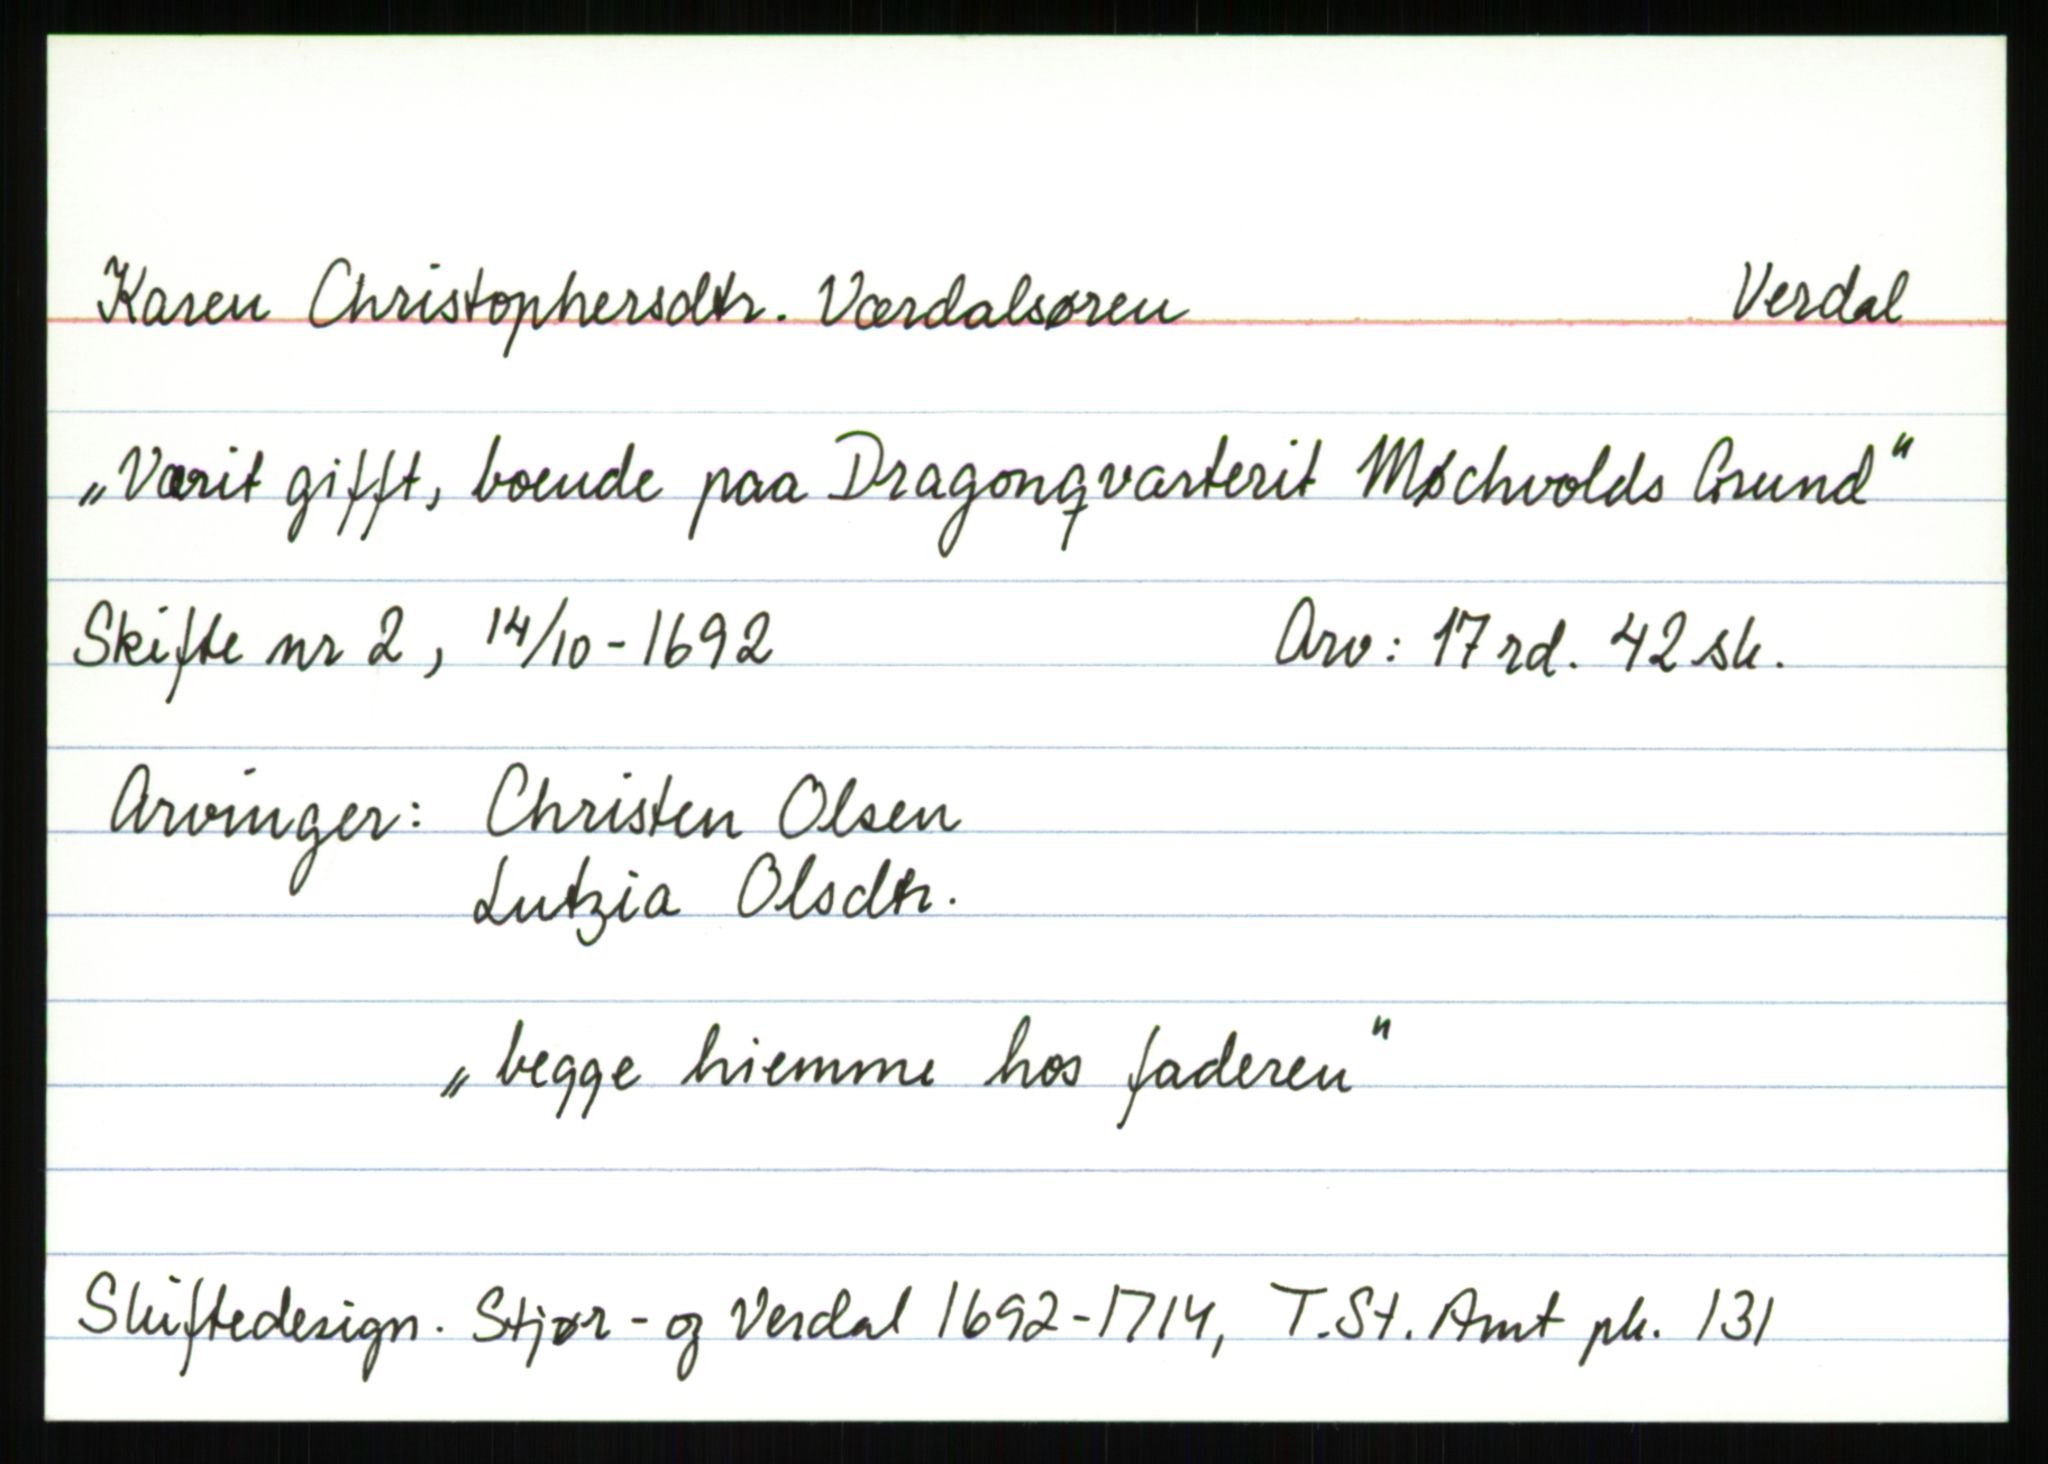 Karen Christophersdtr. Værdalsøren Verdal
„Værit gifft, boende paa Dragonqvarterit Møchvolds Grund"
Skifte nr 2, 14/10-1692 Arv: 17 rd. 42 sk.
Arvinger: Christen Olsen
Lutzia Olsdtr.
„begge hiemme hos faderen"
Skiftedesign. Stjør- og Verdal 1692-1714, T.St. Amt pk. 131